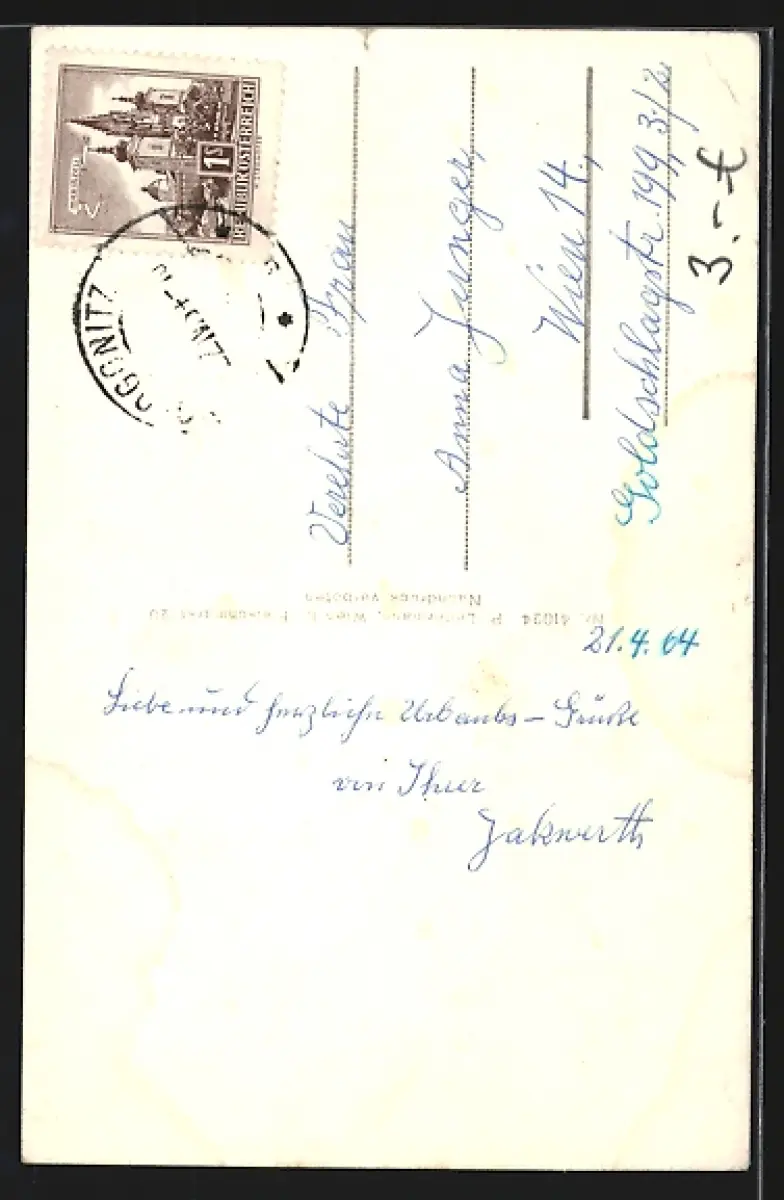 1S
REPUBLIK ÖSTERREICH
MARIAZELL
OGONITZ
Verehrte Frau
Anna Junger,
Wien 14.,
Goldschlagstr. 199, 3./
3.-€
Nr. 41024 P. Ledermann, Wien
Nachdruck verboten
21.4.64
Liebe und herzliche Urlaubs-Grüße
von Ihrer
Jakwerth